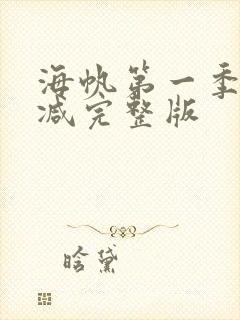 海帆第一季
减完整版
晗黛